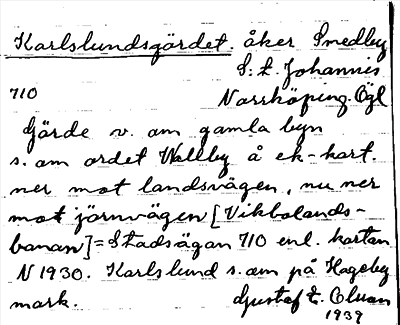 Karlslundsgärdet. åker Smedby
S:t Johannis
710 Norrköping. Ögl
Gärde v. om gamla byn
s. om ordet Wallby å ek-kart.
ner mot landsvägen, nu ner
mot järnvägen [Vikbolands-
banan] = Stadsägan 710 enl. kartan
N 1930. Karlslund s. om på Hageby
mark. Gustaf E. Olsson
1939